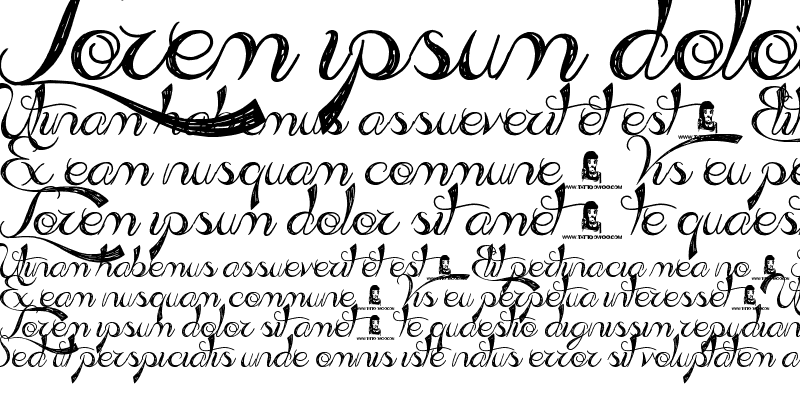 Lorem ipsum dolo
Utinam habemus assueverit et est Elit
Ex eam nusquam commune Vis eu pe
Lorem ipsum dolor sit amet Te quaes
Utinam habemus assueverit et est Elit pertinacia mea no
Ex eam nusquam commune Vis eu perpetua interesset U
Lorem ipsum dolor sit amet Te quaestio dignissim repudian
Sed ut perspiciatis unde omnis iste natus error sit voluptatem a